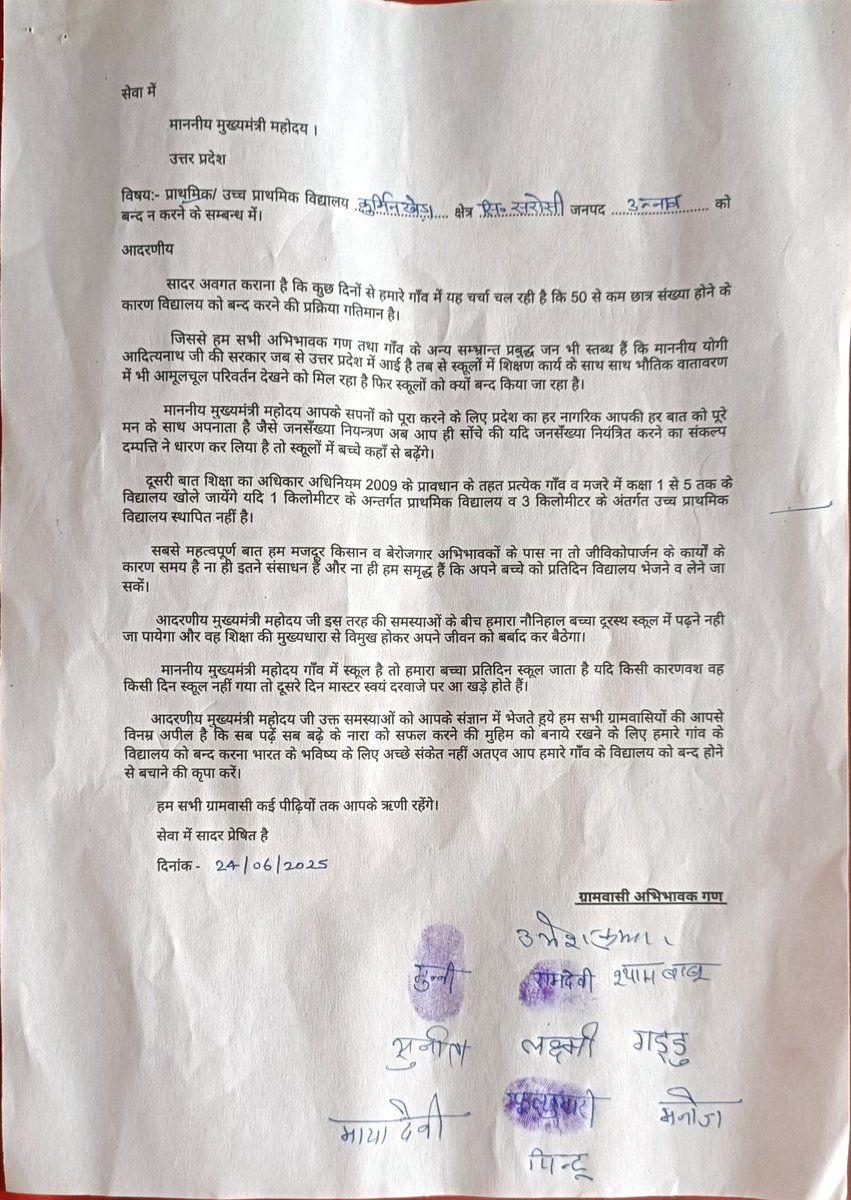 सेवा में
माननीय मुख्यमंत्री महोदय ।
उत्तर प्रदेश
विषय:- प्राथमिक/ उच्च प्राथमिक विद्यालय .कुर्मिनखेड़ा.... क्षेत्र .सि० सरोसी जनपद ....उन्नाव...... को
बन्द न करने के सम्बन्ध में।
आदरणीय
सादर अवगत कराना है कि कुछ दिनों से हमारे गाँव में यह चर्चा चल रही है कि 50 से कम छात्र संख्या होने के
कारण विद्यालय को बन्द करने की प्रक्रिया गतिमान है।
जिससे हम सभी अभिभावक गण तथा गाँव के अन्य सम्भ्रान्त प्रबुद्ध जन भी स्तब्ध हैं कि माननीय योगी
आदित्यनाथ जी की सरकार जब से उत्तर प्रदेश में आई है तब से स्कूलों में शिक्षण कार्य के साथ साथ भौतिक वातावरण
में भी आमूलचूल परिवर्तन देखने को मिल रहा है फिर स्कूलों को क्यों बन्द किया जा रहा है।
माननीय मुख्यमंत्री महोदय आपके सपनों को पूरा करने के लिए प्रदेश का हर नागरिक आपकी हर बात को पूरे
मन के साथ अपनाता है जैसे जनसँख्या नियन्त्रण अब आप ही सोंचे की यदि जनसँख्या नियंत्रित करने का संकल्प
दम्पत्ति ने धारण कर लिया है तो स्कूलों में बच्चे कहाँ से बढ़ेंगे।
दूसरी बात शिक्षा का अधिकार अधिनियम 2009 के प्रावधान के तहत प्रत्येक गाँव व मजरे में कक्षा 1 से 5 तक के
विद्यालय खोले जायेंगे यदि 1 किलोमीटर के अन्तर्गत प्राथमिक विद्यालय व 3 किलोमीटर के अंतर्गत उच्च प्राथमिक
विद्यालय स्थापित नहीं है।
सबसे महत्वपूर्ण बात हम मजदूर किसान व बेरोजगार अभिभावकों के पास ना तो जीविकोपार्जन के कार्यों के
कारण समय है ना ही इतने संसाधन हैं और ना ही हम समृद्ध हैं कि अपने बच्चे को प्रतिदिन विद्यालय भेजने व लेने जा
सकें।
आदरणीय मुख्यमंत्री महोदय जी इस तरह की समस्याओं के बीच हमारा नौनिहाल बच्चा दूरस्थ स्कूल में पढ़ने नही
जा पायेगा और वह शिक्षा की मुख्यधारा से विमुख होकर अपने जीवन को बर्बाद कर बैठेगा।
माननीय मुख्यमंत्री महोदय गाँव में स्कूल है तो हमारा बच्चा प्रतिदिन स्कूल जाता है यदि किसी कारणवश वह
किसी दिन स्कूल नहीं गया तो दूसरे दिन मास्टर स्वयं दरवाजे पर आ खड़े होते हैं।
आदरणीय मुख्यमंत्री महोदय जी उक्त समस्याओं को आपके संज्ञान में भेजते हुये हम सभी ग्रामवासियों की आपसे
विनम्र अपील है कि सब पढ़ें सब बढ़े के नारा को सफल करने की मुहिम को बनाये रखने के लिए हमारे गांव के
विद्यालय को बन्द करना भारत के भविष्य के लिए अच्छे संकेत नहीं अतएव आप हमारे गाँव के विद्यालय को बन्द होने
से बचाने की कृपा करें।
हम सभी ग्रामवासी कई पीढ़ियों तक आपके ऋणी रहेंगे।
सेवा में सादर प्रेषित है
दिनांक - 24/06/2025
ग्रामवासी अभिभावक गण
उमेश कुमार
मुन्नी रामदेवी श्याम बाबू
सुनीता लक्ष्मी गड्डु
माया देवी मनोज
पिन्टू